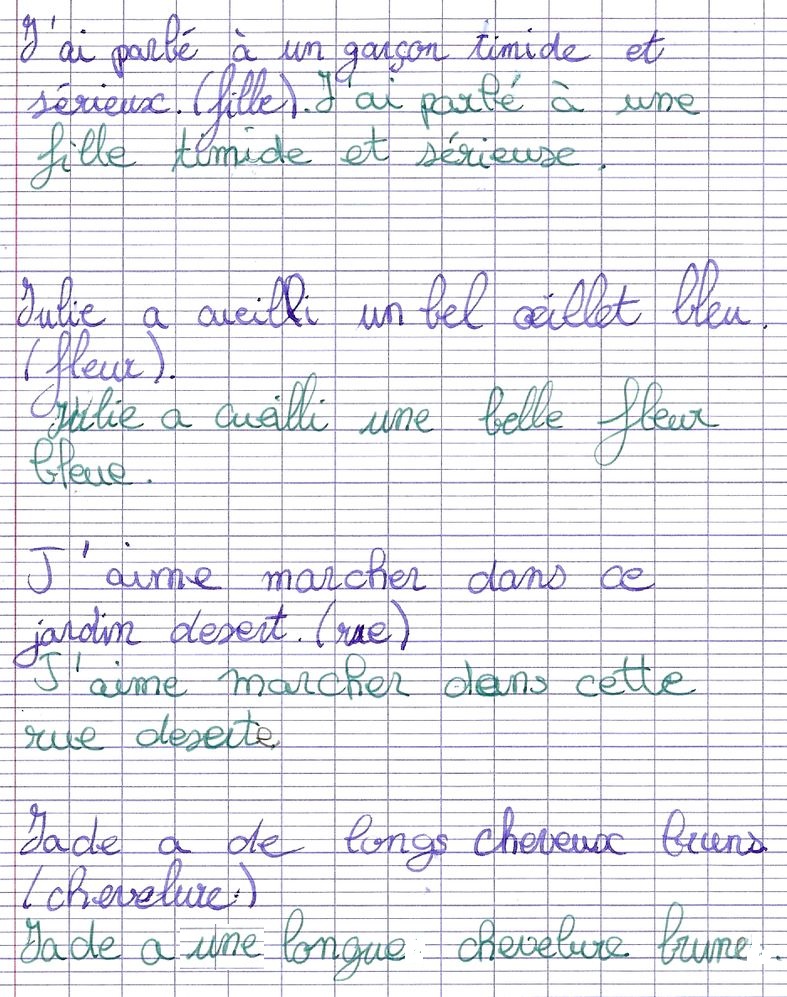 J'ai parlé à un garçon timide et
sérieux. (fille). J'ai parlé à une
fille timide et sérieuse.
Julie a cueilli un bel œillet bleu.
(fleur).
Julie a cueilli une belle fleur
bleue.
J'aime marcher dans ce
jardin desert. (rue)
J'aime marcher dans cette
rue deserte
Jade a de longs cheveux bruns
(chevelure.)
Jade a une longue chevelure brune.